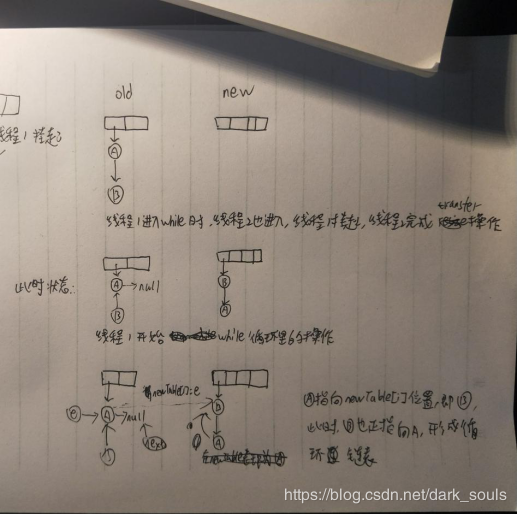 old new
线程1挂起
A
B
transfer
线程1进入while时,线程2也进入,线程1挂起,线程2完成 操作
此时状态:
A null B
B A
线程1开始 while循环里的操作
newTable[i]=e
e A null B
next A
A指向newTable[i]位置,即B,
此时,B也正指向A,形成循
环 链表
https://blog.csdn.net/dark_souls